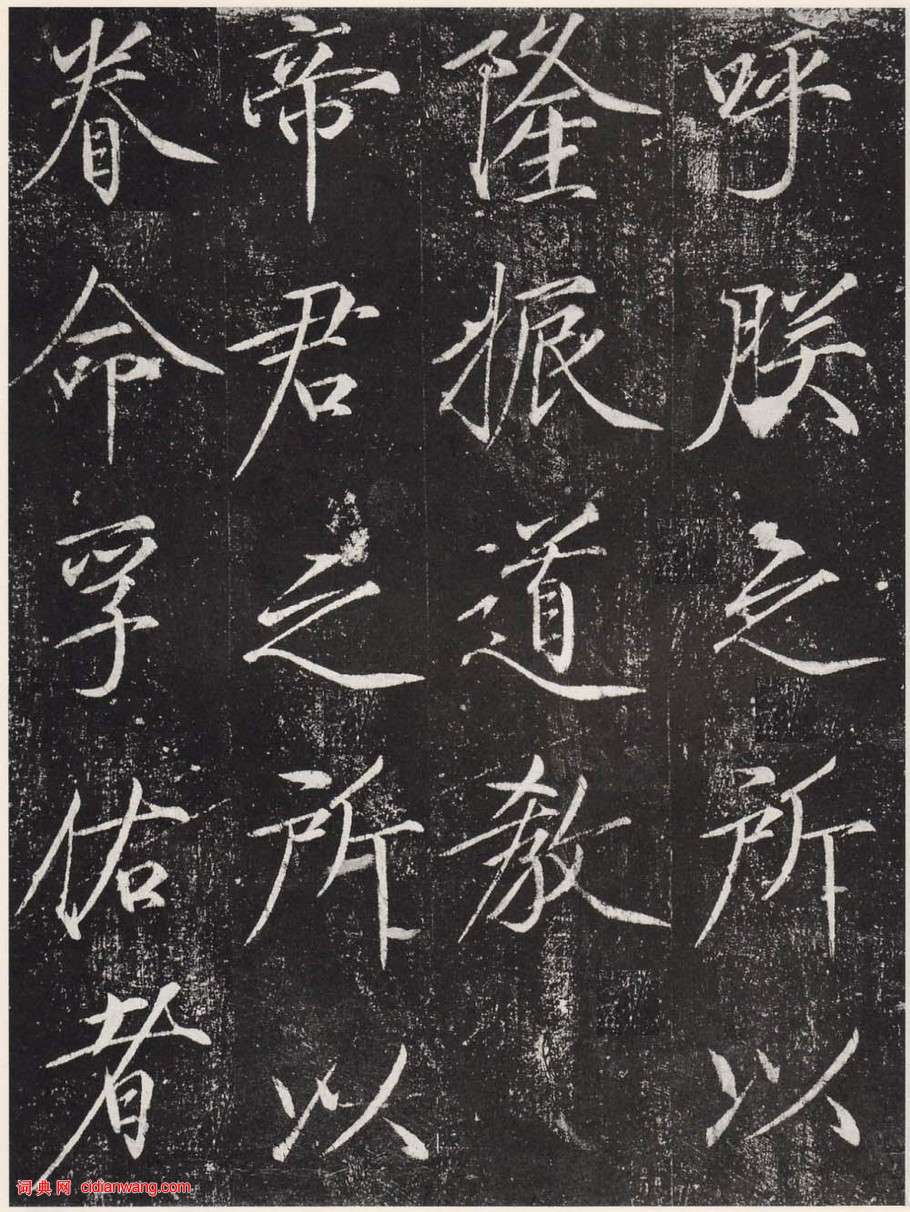 呼朕之所以
隆振道教
帝君之所以
眷命孚佑者
词典网 cidianwang.com